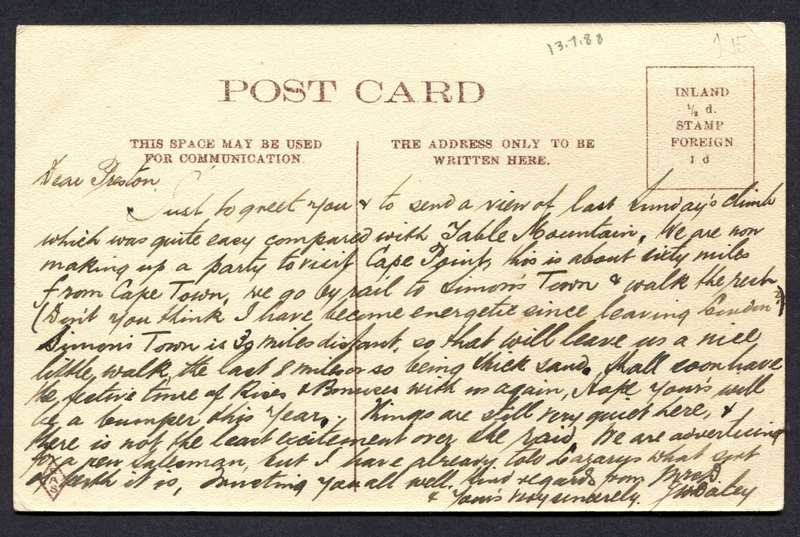 13.7.88
1 15
POST CARD
INLAND
½ d.
STAMP
FOREIGN
1 d
THIS SPACE MAY BE USED
FOR COMMUNICATION.
THE ADDRESS ONLY TO BE
WRITTEN HERE.
Dear Preston
Just to greet you & to send a view of last Sunday's climb
which was quite easy compared with Table Mountain, We are now
making up a party to visit Cape Point, this is about sixty miles
from Cape Town, we go by rail to Simon's Town & walk the rest
(Don't you think I have become energetic since leaving London?)
Simon's Town is 30 miles distant, so that will leave us a nice
little walk, the last 8 miles or so being thick sand. Shall soon have
the festive time of Rises & Bonuses with us again, Hope yours will
be a bumper this year. Things are still very quiet here, &
there is not the least excitement over the raid. We are advertising
for a new salesman, but I have already told Lazarus what sort
of berth it is, Trusting you all well. Kind regards from Mrs D.
& Yours very sincerely. Daley